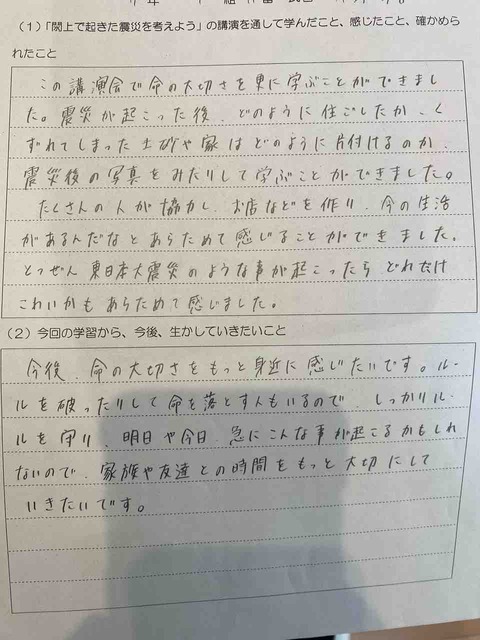 (1)「閖上で起きた震災を考えよう」の講演を通して学んだこと、感じたこと、確かめら
れたこと
この講演会で命の大切さを更に学ぶことができまし
た。震災が起こった後、どのように住ごしたか、く
ずれてしまった土砂や家はどのように片付けるのか、
震災後の写真をみたりして学ぶことができました。
たくさんの人が協力し、お店などを作り、今の生活
があるんだなとあらためて感じることができました。
とつぜん東日本大震災のような事が起こったらどれだけ
こわいかもあらためて感じました。
(2)今回の学習から、今後、生かしていきたいこと
今後、命の大切さをもっと身近に感じたいです。ル-
ルを破ったりして命を落とす人もいるので、しっかりル-
ルを守り、明日や今日、急にこんな事が起こるかもしれ
ないので、家族や友達との時間をもっと大切にして
いきたいです。